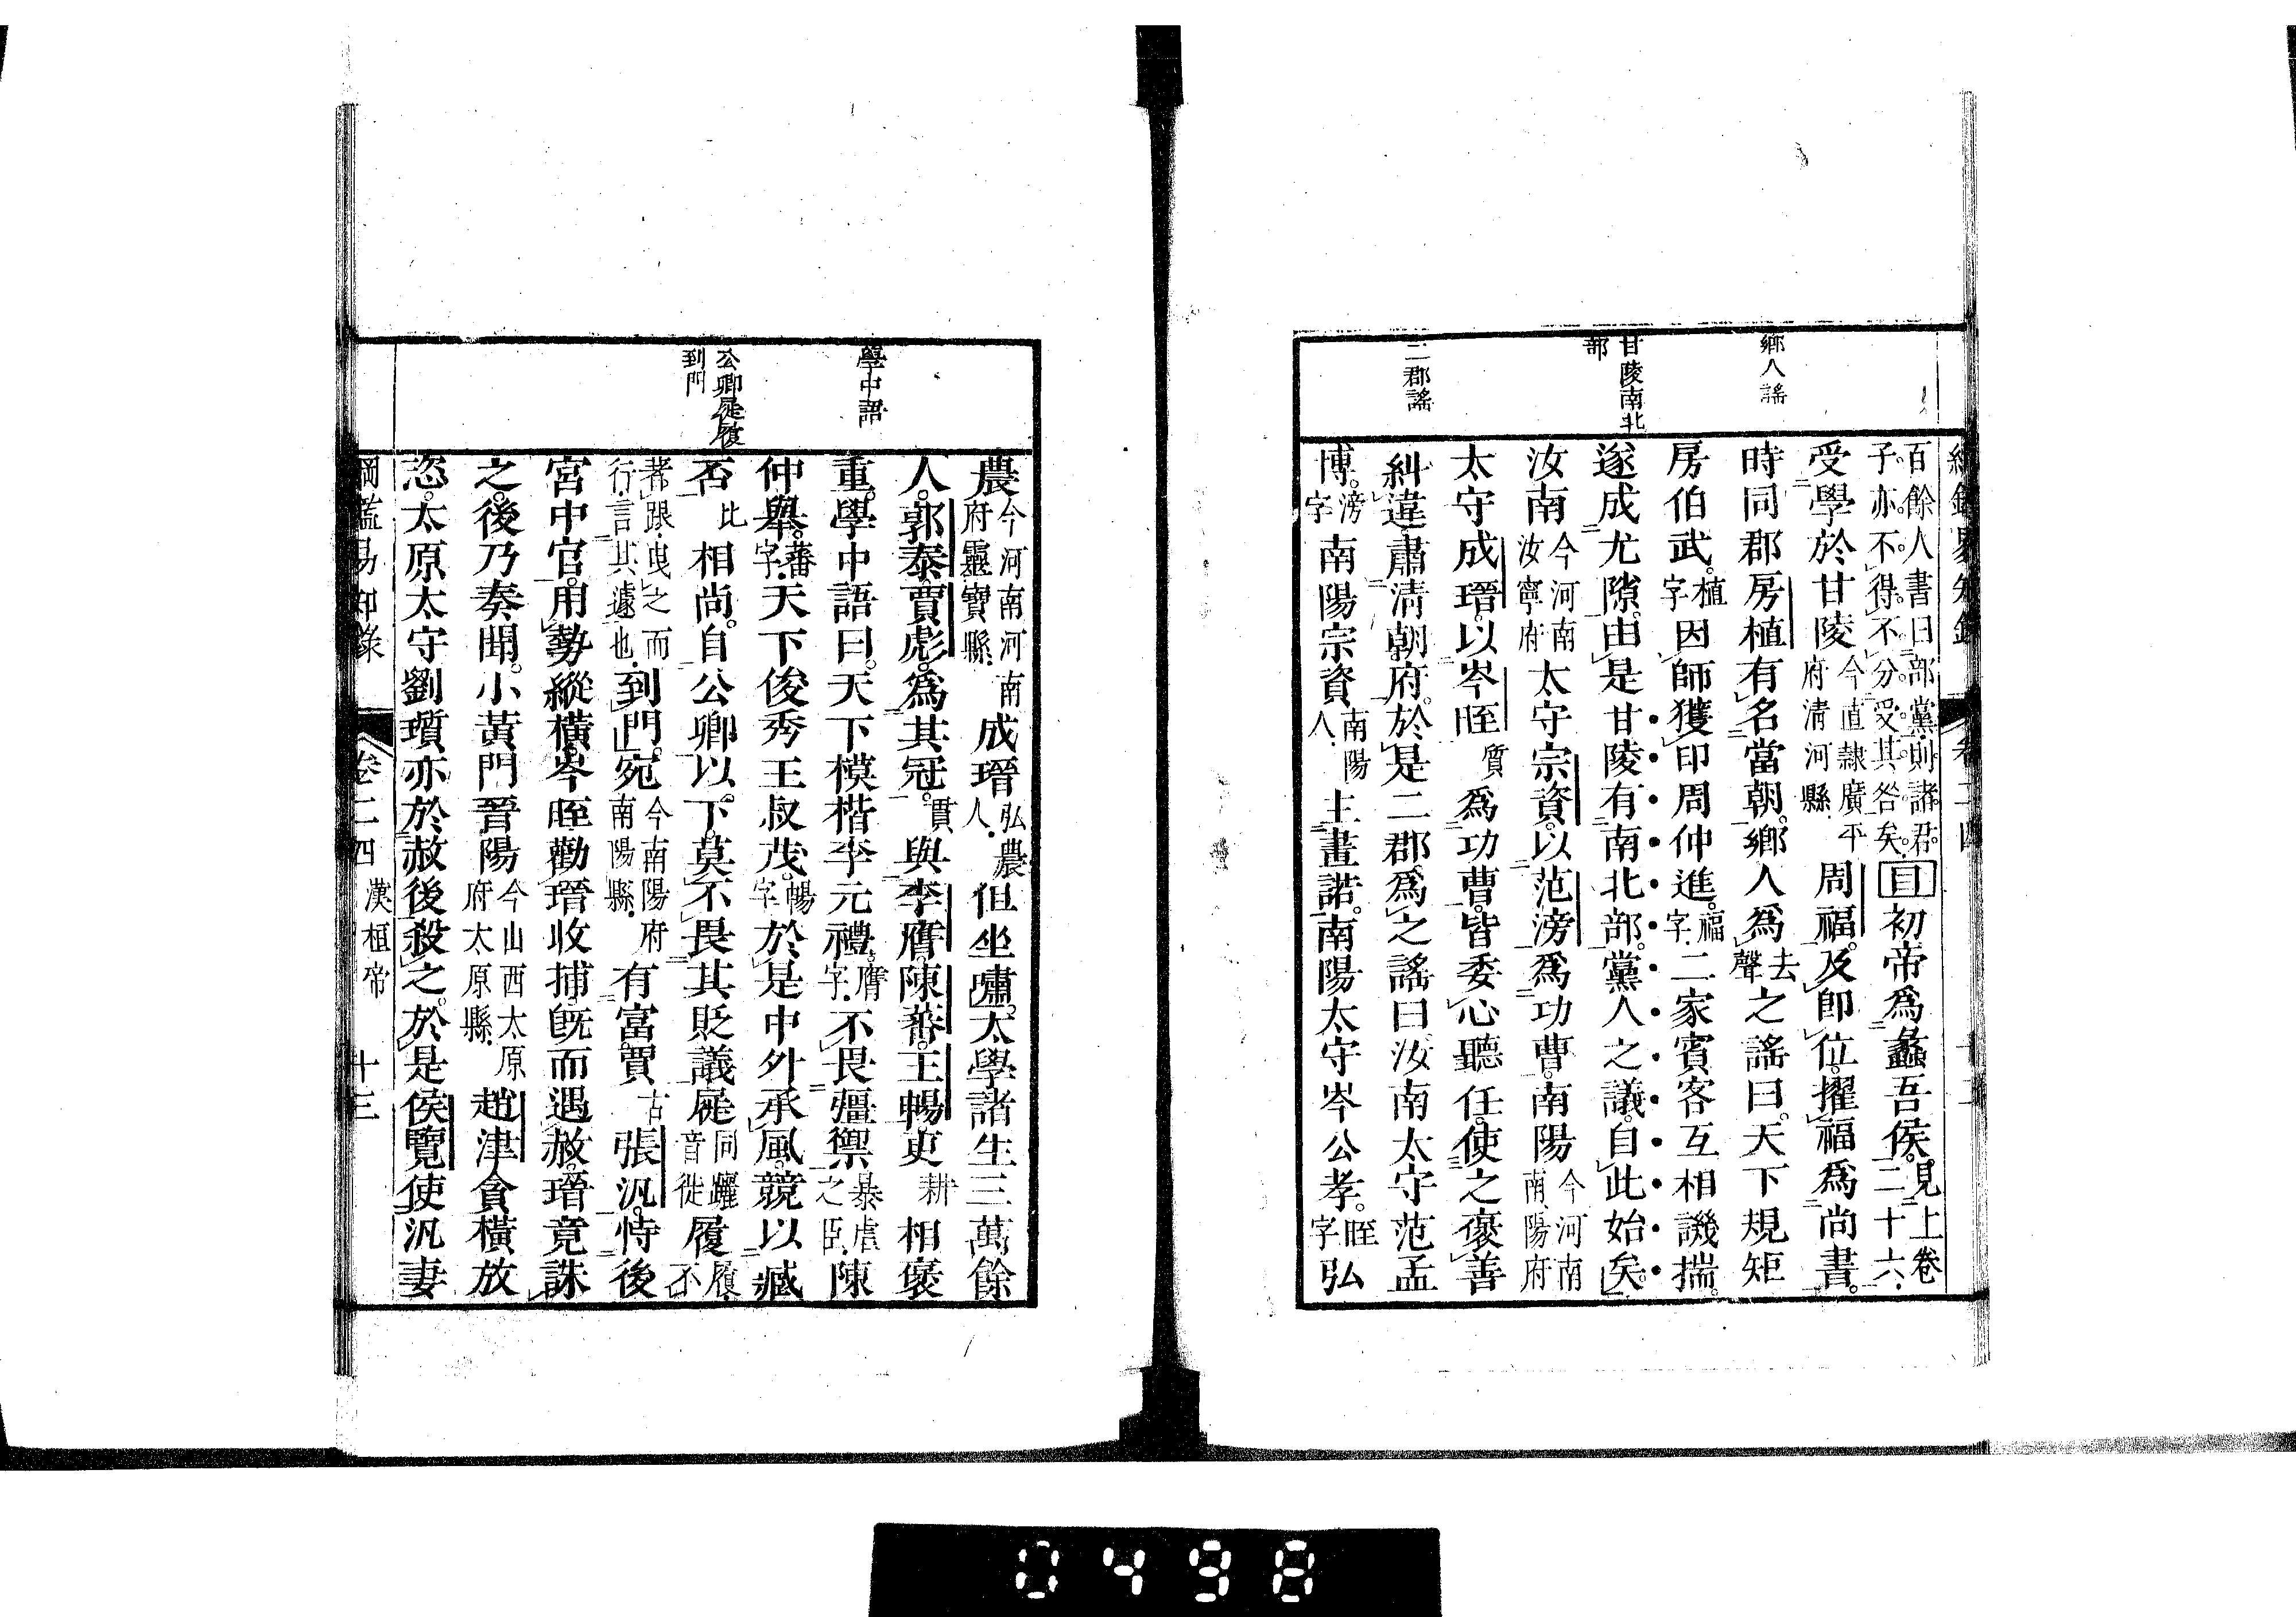 鄉人謠
甘陵南北
部
二郡謠
百餘人書曰部黨則諸君
子亦不得不分受其咎矣 目 初帝爲蠡吾侯 見上卷 二十六
受學於甘陵 今直隸廣平府清河縣 周福及即位擢福爲尚書
時同郡房植有名當朝鄉人爲 去聲 之謠曰天下規矩
房伯武 植字 因師獲印周仲進 福字 二家賓客互相譏揣
遂成尤隙由是甘陵有南北部黨人之議自此始矣
汝南 今河南汝寧府 太守宗資以范滂爲功曹南陽 今河南南陽府
太守成瑨以岑晊 質 爲功曹皆委心聽任使之褒善
糾違肅清朝府於是二郡爲之謠曰汝南太守范孟
博 滂字 南陽宗資 南陽人 主畫諾南陽太守岑公孝 晊字 弘
學中語
公卿屣履
到門
農 今河南河南府靈寶縣 成瑨 弘農人 但坐嘯太學諸生三萬餘
人郭泰賈彪爲其冠 貫 與李膺陳蕃王暢更 耕 相褒
重學中語曰天下模楷李元禮 膺字 不畏彊禦 暴虐之臣 陳
仲舉 蕃字 天下俊秀王叔茂 暢字 於是中外承風競以臧
否 比 相尚自公卿以下莫不畏其貶議屣 同躧音徙 履 履不
著跟曳之而行言其遽也 到門宛 今南陽府南陽縣 有富賈 古 張汎恃後
宮中官用勢縱橫岑晊勸瑨收捕旣而遇赦瑨竟誅
之後乃奏聞小黃門晉陽 今山西太原府太原縣 趙津貪橫放
恣太原太守劉瓆亦於赦後殺之於是侯覽使汎妻
綱鑑易知錄 卷二四 漢桓帝 十三